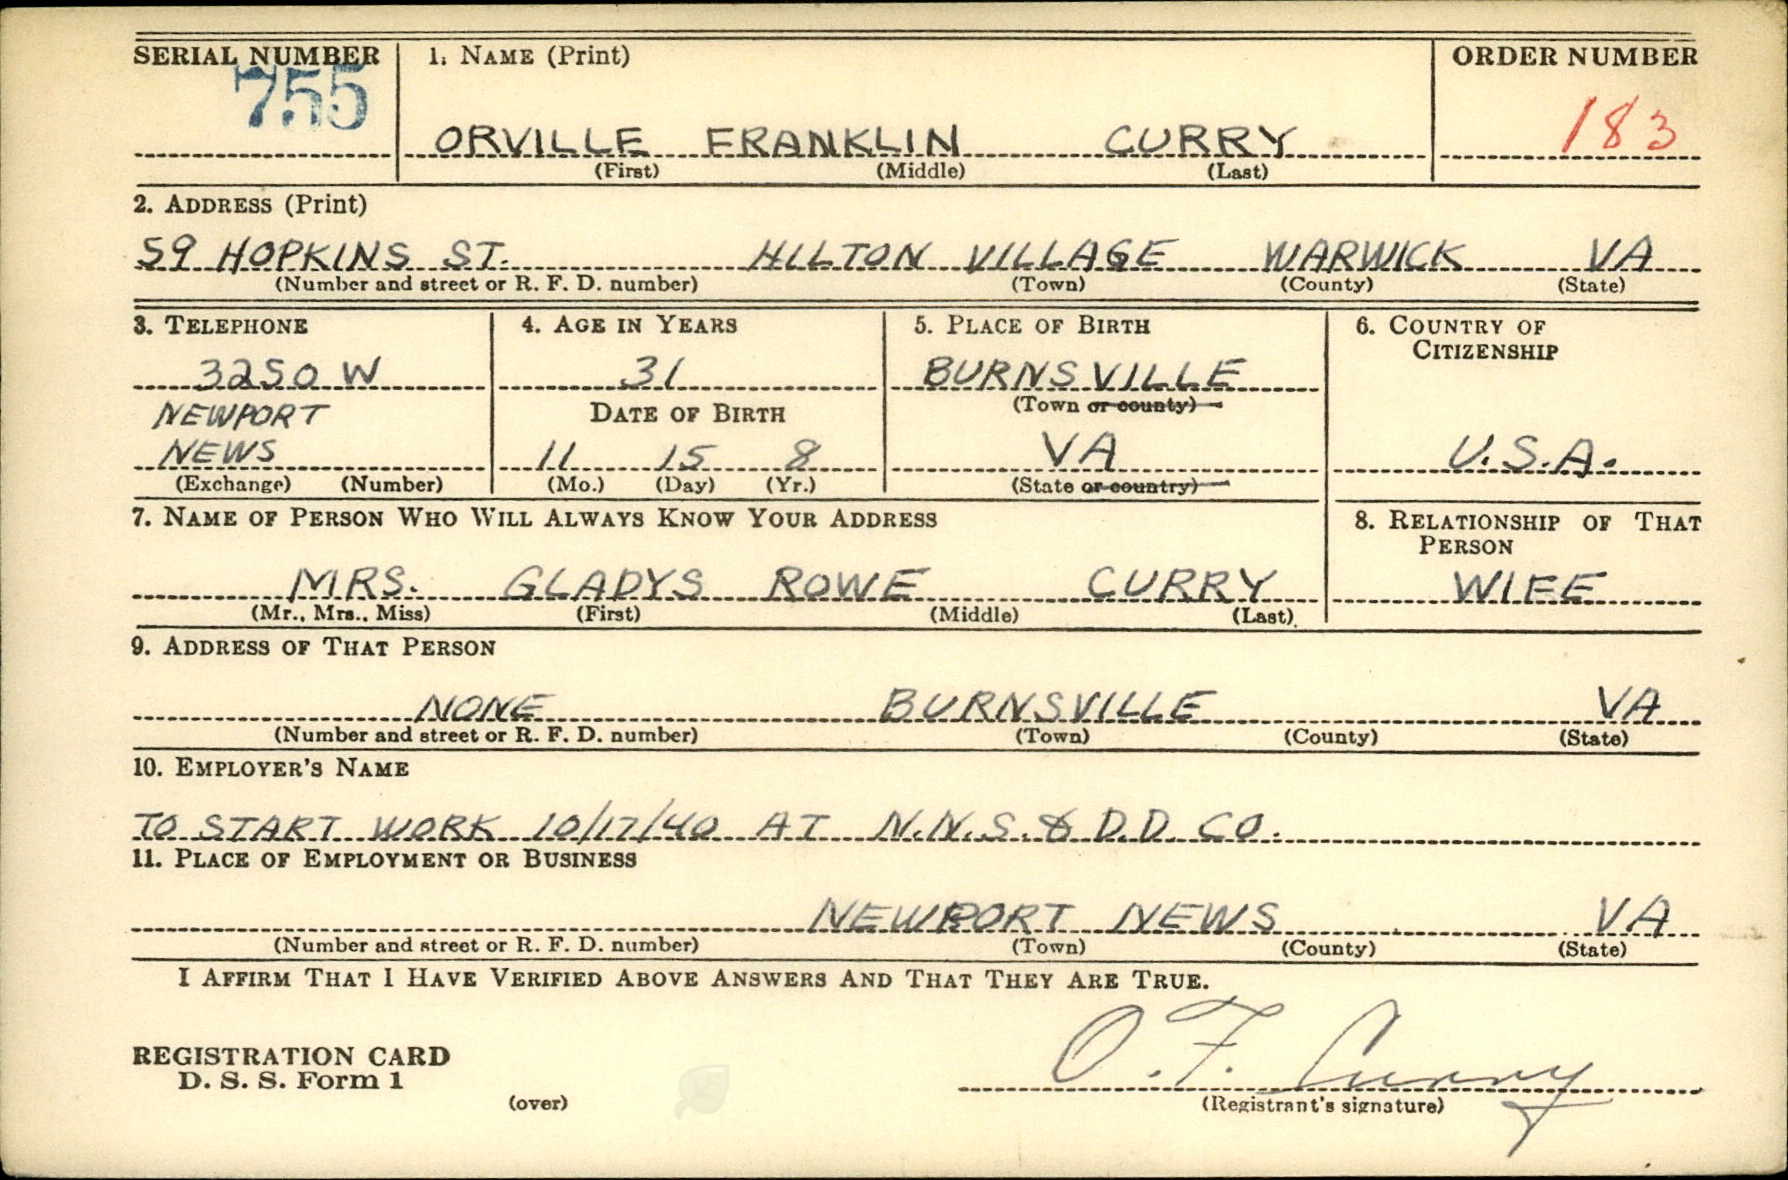 SERIAL NUMBER 1. NAME (Print) ORDER NUMBER
755 183
ORVILLE FRANKLIN CURRY
(First) (Middle) (Last)
2. ADDRESS (Print)
59 HOPKINS ST. HILTON VILLAGE WARWICK VA
(Number and street or R. F. D. number) (Town) (County) (State)
3. TELEPHONE 4. AGE IN YEARS 5. PLACE OF BIRTH 6. COUNTRY OF
CITIZENSHIP
3250 W 31 BURNSVILLE
(Town or county)
NEWPORT DATE OF BIRTH
NEWS 11 15 8 VA U.S.A.
(Exchange) (Number) (Mo.) (Day) (Yr.) (State or country)
7. NAME OF PERSON WHO WILL ALWAYS KNOW YOUR ADDRESS 8. RELATIONSHIP OF THAT
PERSON
MRS. GLADYS ROWE CURRY WIFE
(Mr., Mrs., Miss) (First) (Middle) (Last)
9. ADDRESS OF THAT PERSON
NONE BURNSVILLE VA
(Number and street or R. F. D. number) (Town) (County) (State)
10. EMPLOYER'S NAME
TO START WORK 10/17/40 AT N.N.S. & D.D. CO.
11. PLACE OF EMPLOYMENT OR BUSINESS
NEWPORT NEWS VA
(Number and street or R. F. D. number) (Town) (County) (State)
I AFFIRM THAT I HAVE VERIFIED ABOVE ANSWERS AND THAT THEY ARE TRUE.
O. F. Curry
REGISTRATION CARD
D. S. S. Form 1
(over) (Registrant's signature)